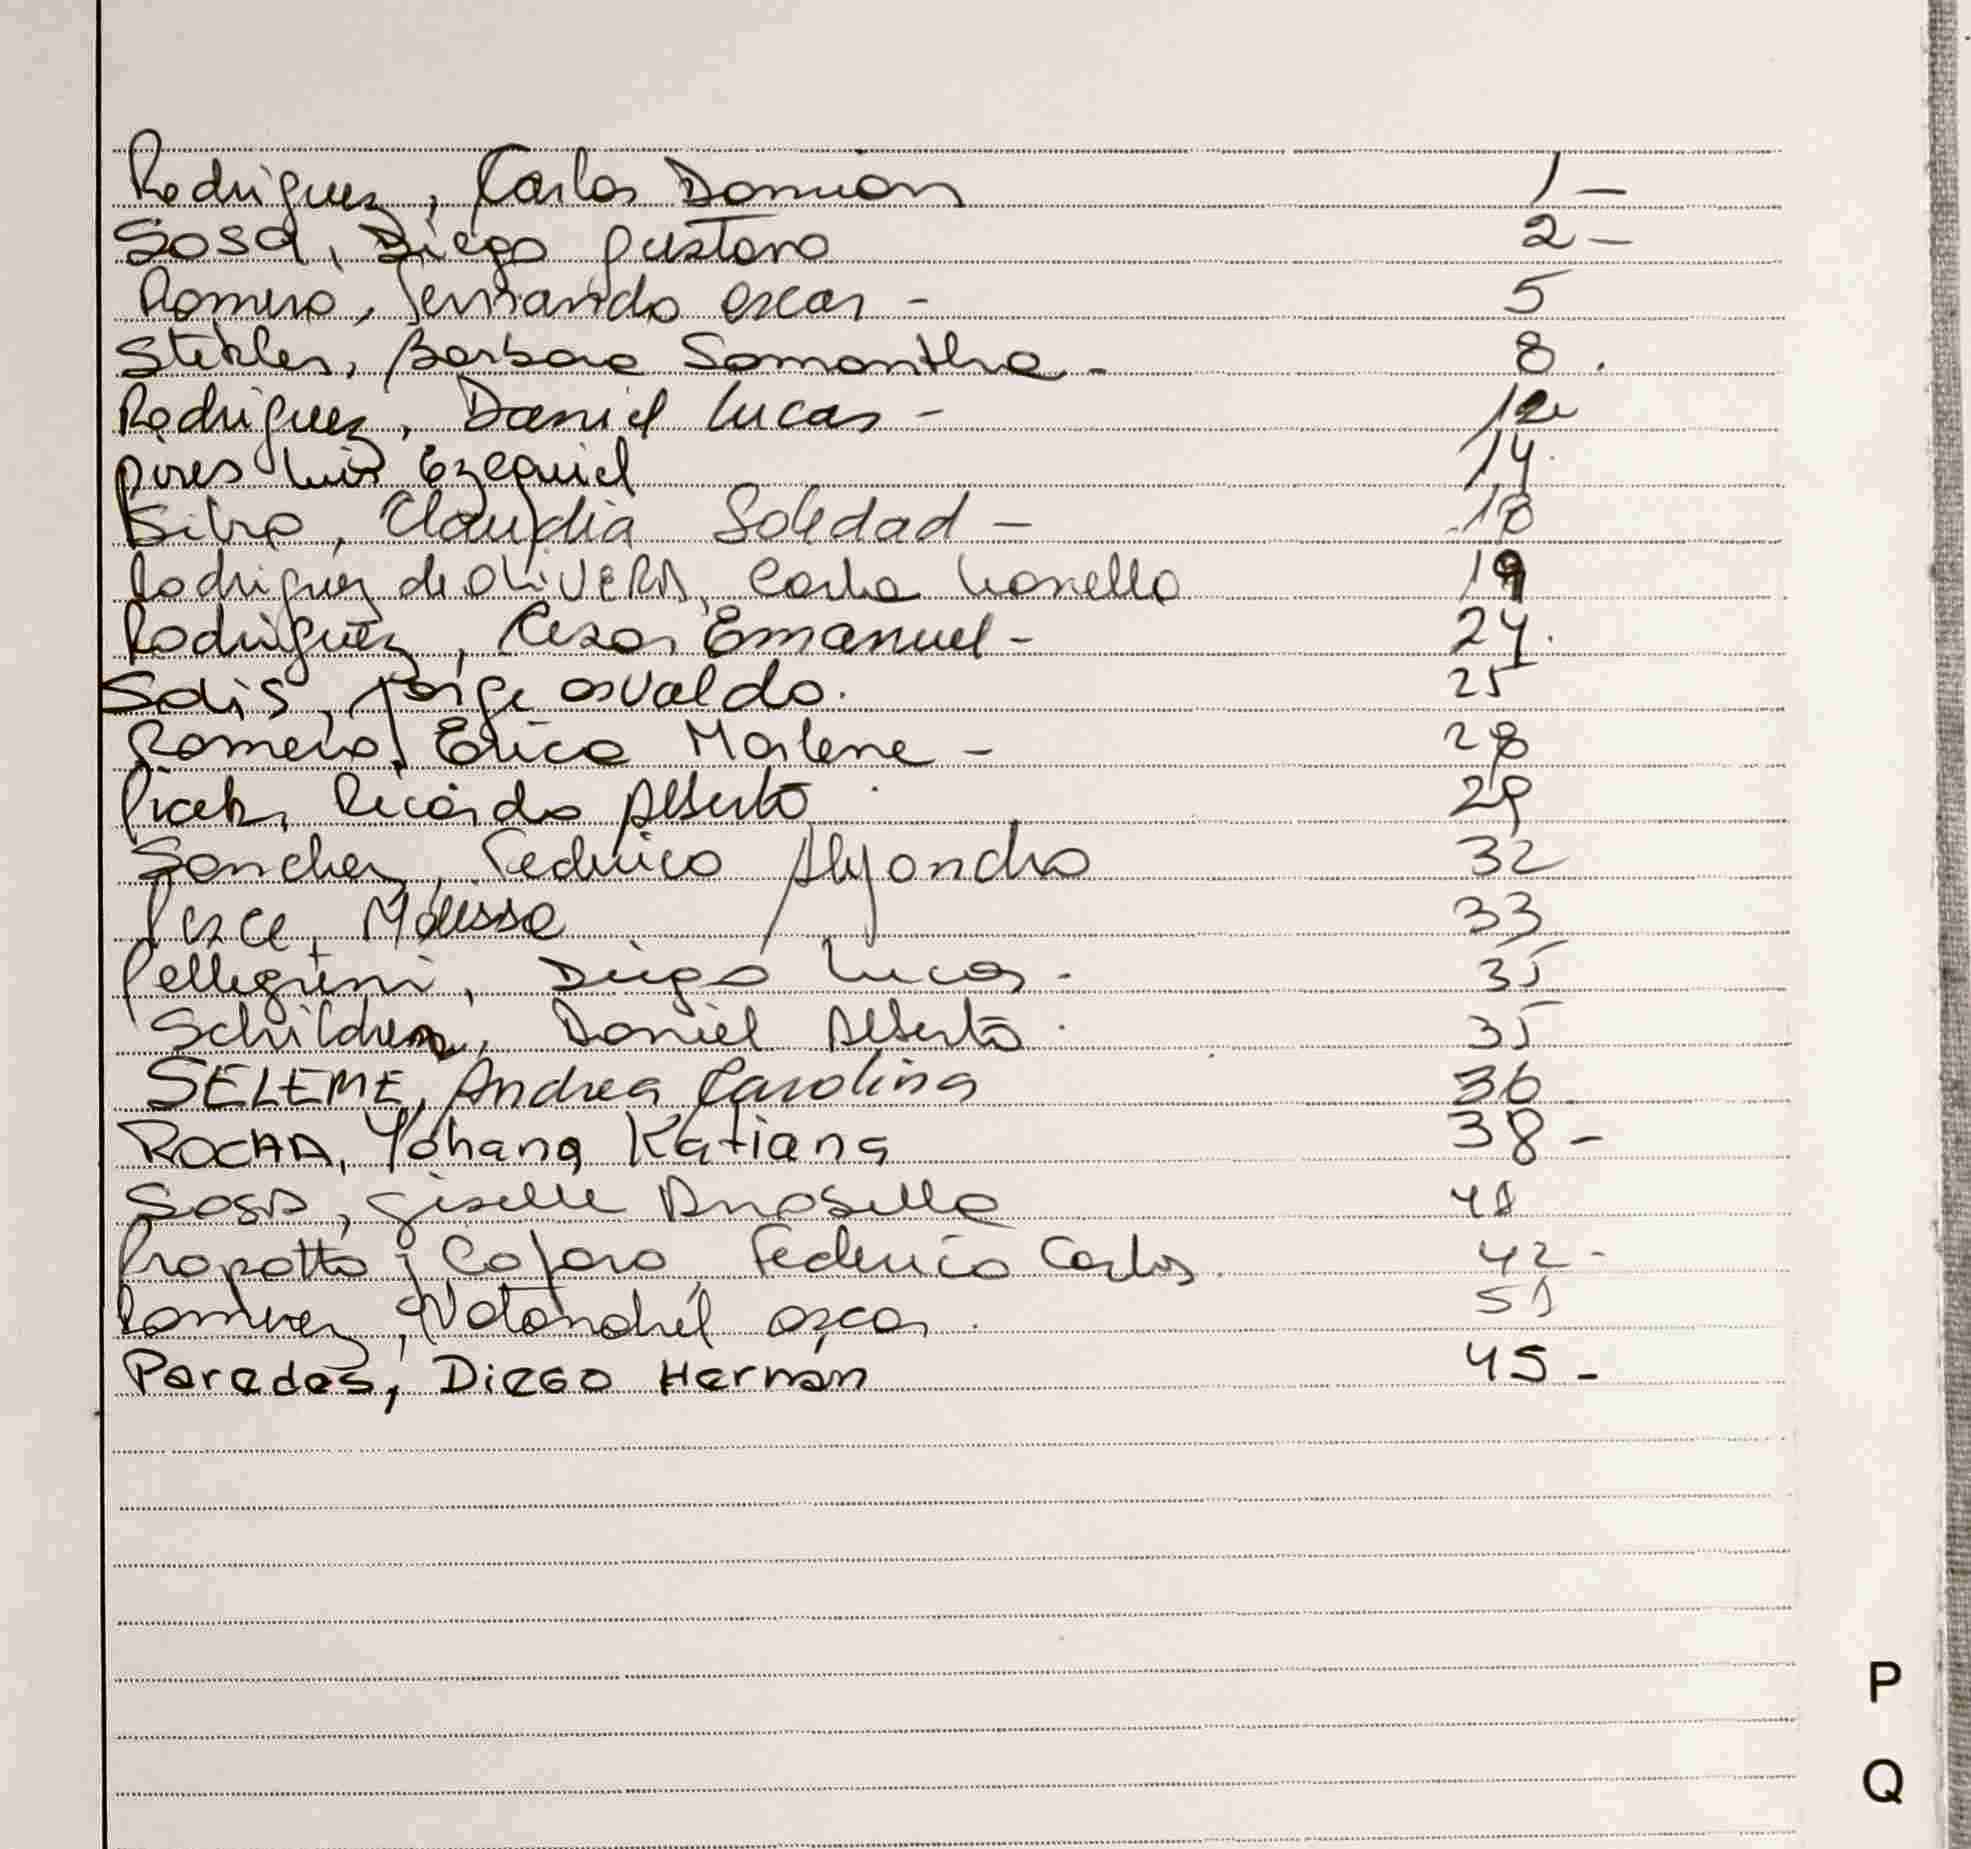 Rodriguez, Carlos Damian 1 –
Sosa, Diego Gustavo 2 –
Romero, Fernando Oscar - 5
Stekler, Barbara Samantha - 8 .
Rodriguez, Daniel Lucas - 12
Pires Luis Ezequiel 14.
Silva, Claudia Soledad - 18
Rodriguez de OLIVERA, Carla 19
Rodriguez, Cesar Emanuel - 24.
Solis, Jorge Osvaldo. 25
Romero, Erica Marlene - 28
Ricardo Alberto 29
Sanchez, Federico Alejandro 32
Pesce, Melissa 33
Pellegrini, Diego Lucas - 35
Daniel Alberto. 35
SELEME, Andrea Carolina 36.
ROCHA, Yohana Katiana 38 –
Sosa, Giselle 41
Federico Carlos. 42 -
Ramirez, Natanahel Oscar. 51
Paredes, Diego Hernán 45 -
P
Q